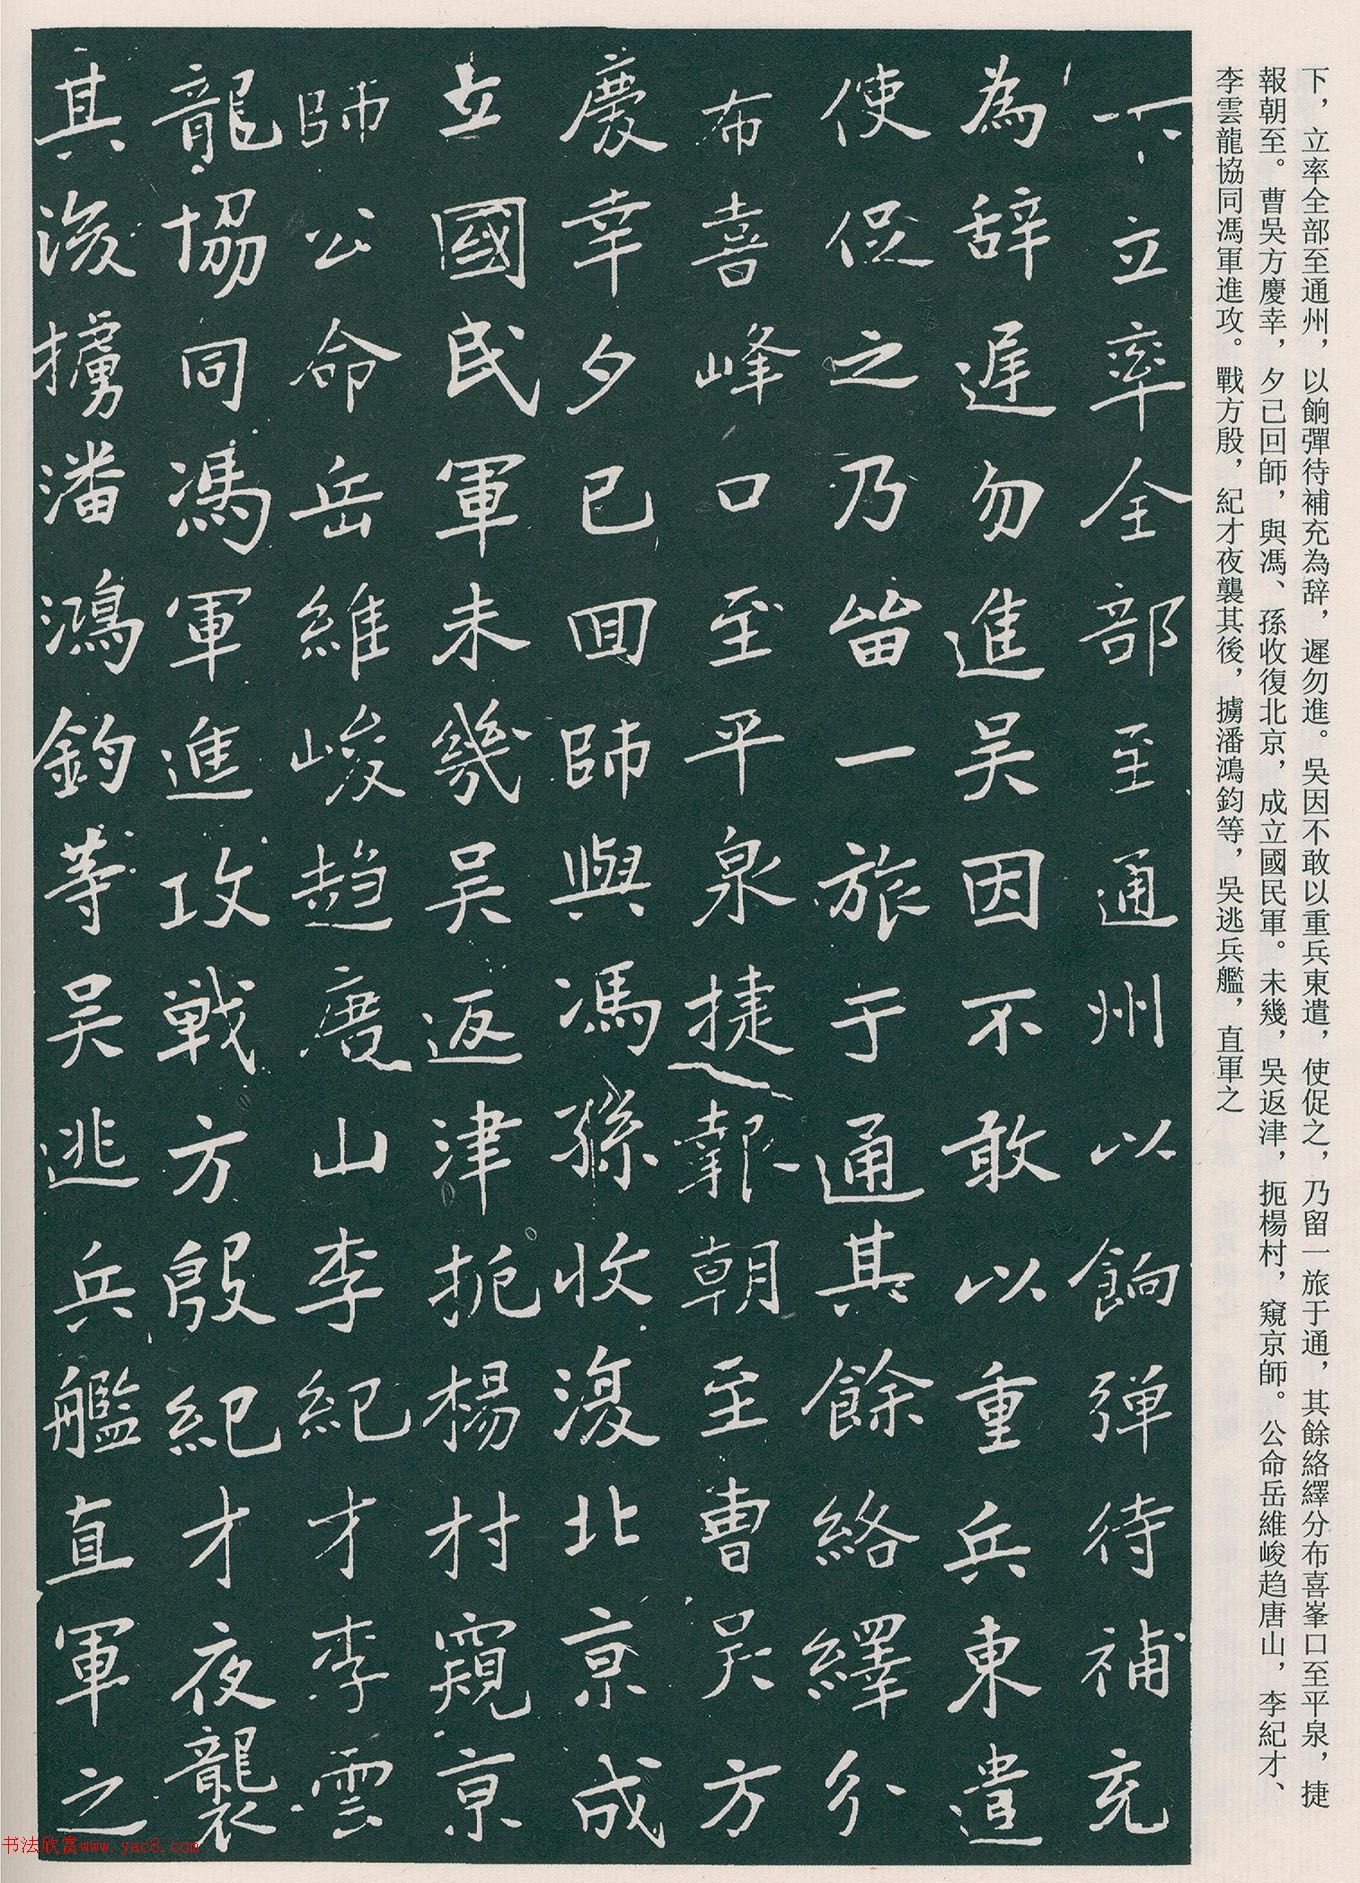 下，立率全部至通州，以餉彈待補充為辞，遲勿進。吳因不敢以重兵東遣，使促之，乃留一旅于通，其餘絡繹分布喜峯口至平泉，捷
報朝至。曹吳方慶幸，夕已回師，與馮、孫收復北京，成立國民軍。未幾，吳返津，扼楊村，窺京師。公命岳維峻趋唐山，李紀才、
李雲龍協同馮軍進攻。戰方殷，紀才夜襲其後，擄潘鴻鈞等，吳逃兵艦，直軍之
下立率全部至通州以餉弹待補充
為辞遲勿進吴因不敢以重兵東遣
使促之乃畱一旅于通其餘絡繹分
布喜峰口至平泉捷報朝至曹吴方
慶幸夕已回師與馮孫收復北京成
立國民軍未幾吴返津扼楊村窺京
師公命岳維峻趋唐山李紀才李雲
龍協同馮軍進攻戦方殷紀才夜襲
其後擄潘鴻鈞等吴逃兵艦直軍之
书法欣赏www.yac8.com